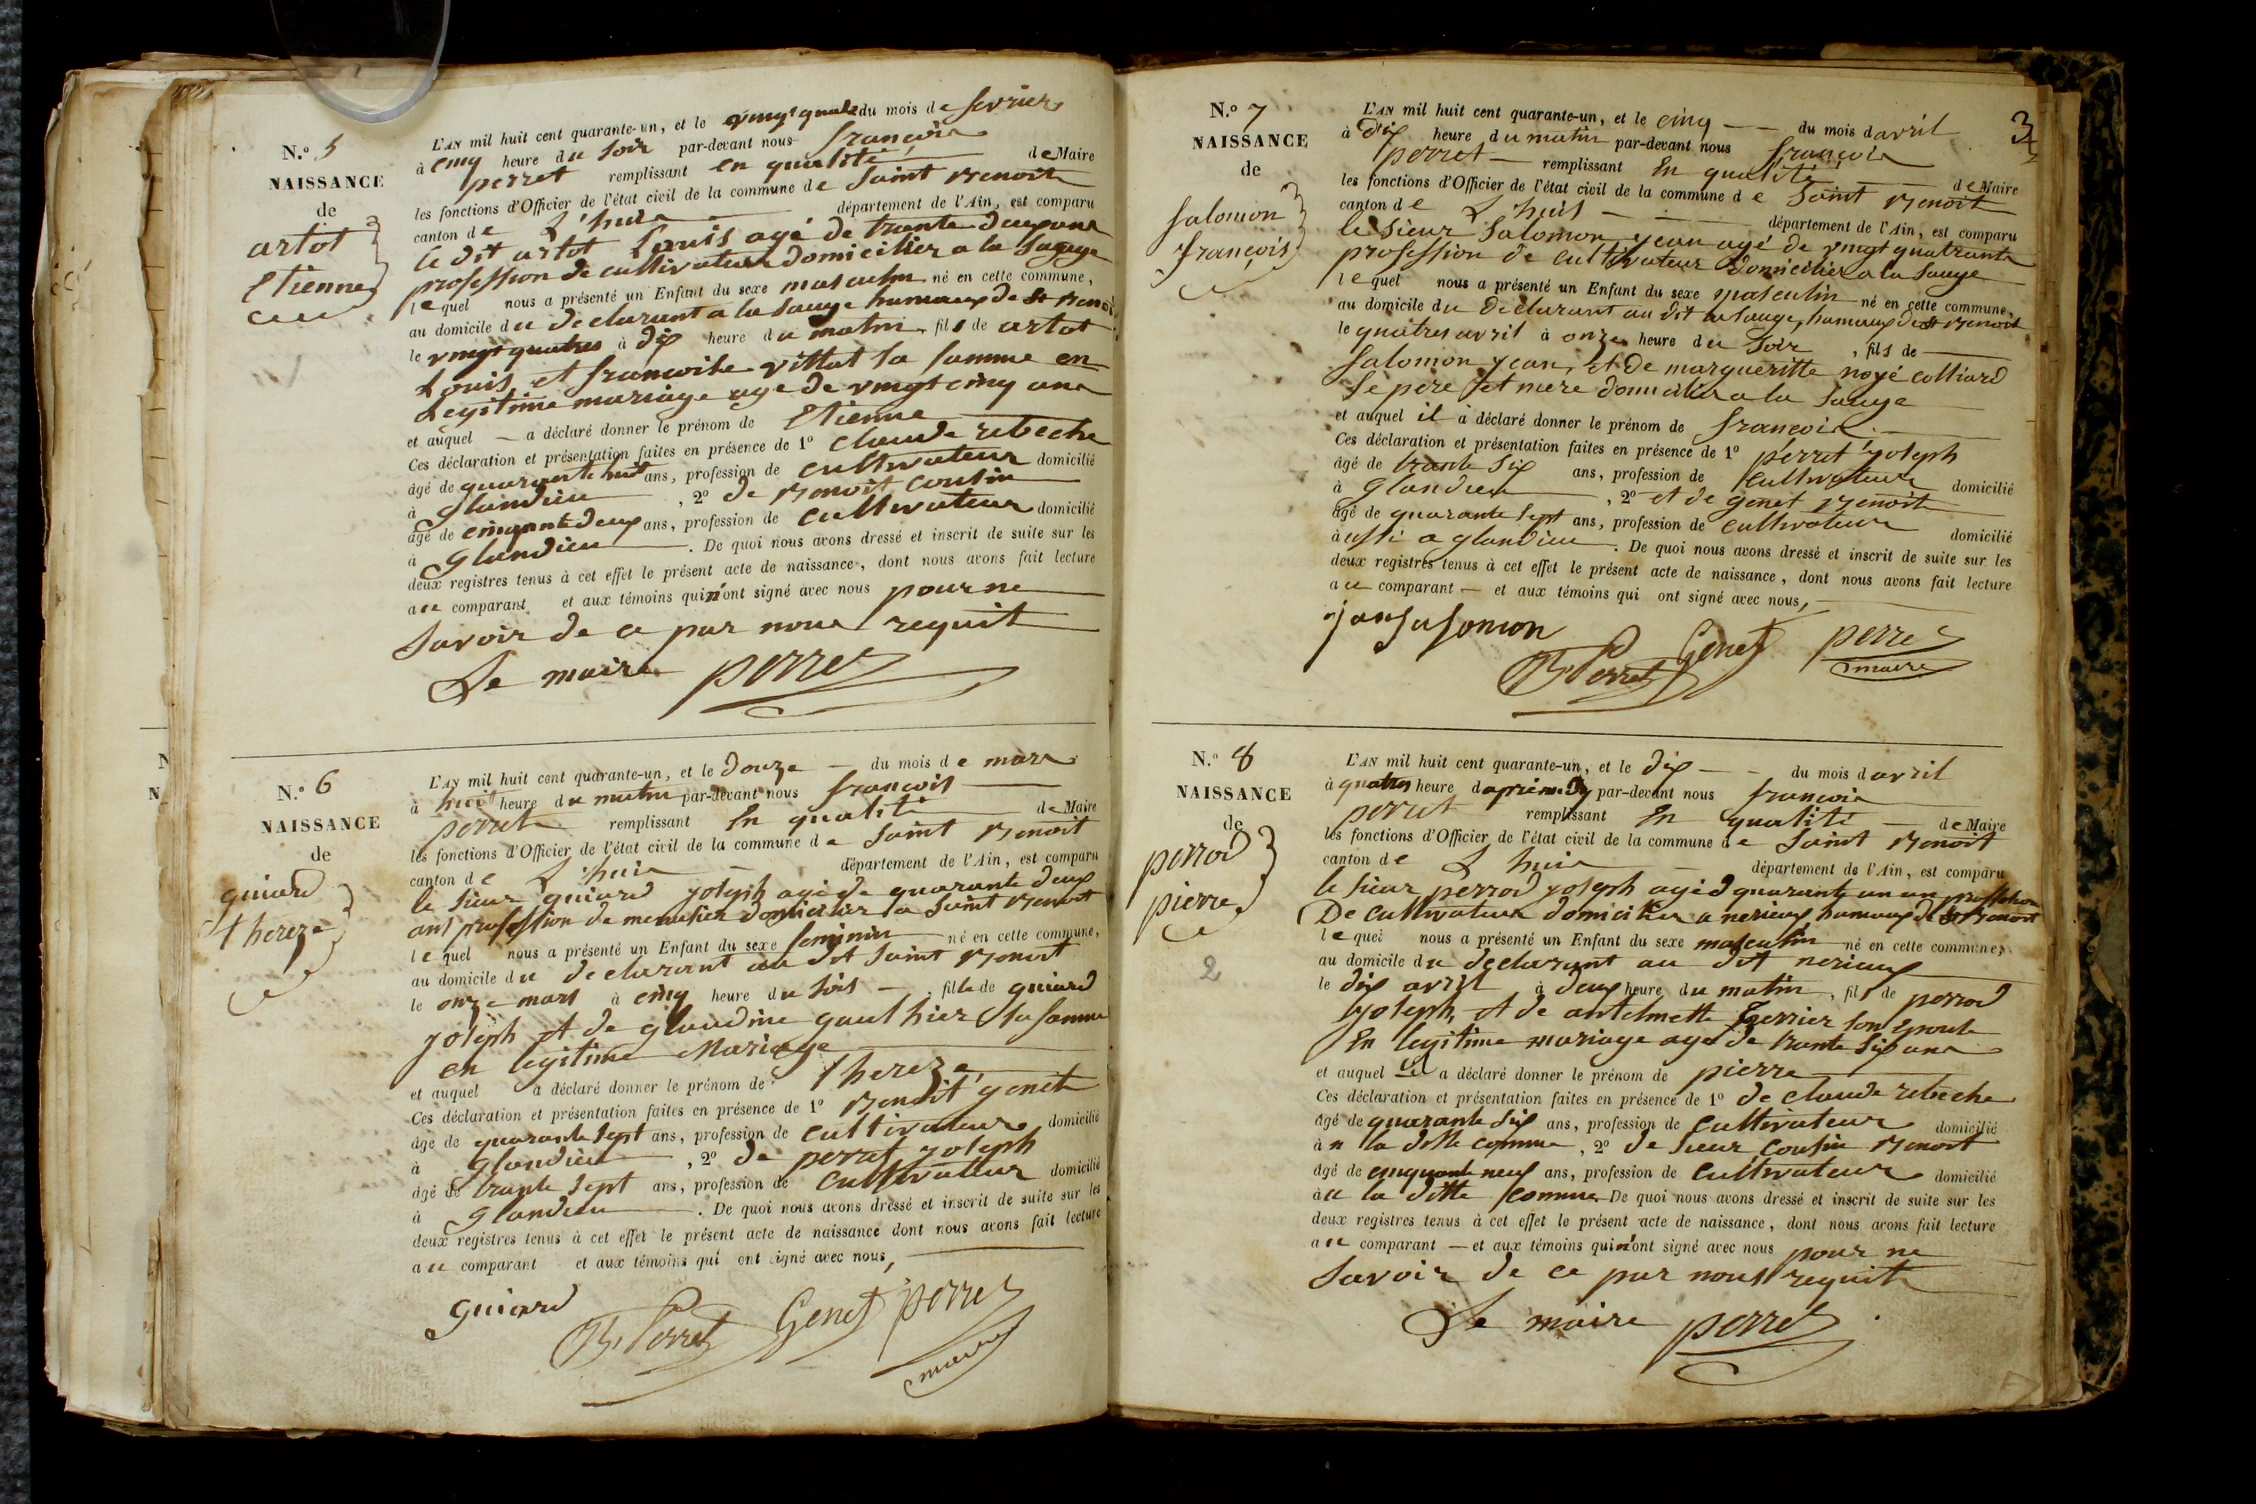 N.o 5
NAISSANCE
de
artot
Etienne
L'AN mil huit cent quarante-un, et le vingt quatre du mois de fevrier
à cinq heure du soir par-devant nous françois
perret remplissant en qualité de Maire
les fonctions d'Officier de l'état civil de la commune de saint Benoit
canton de L'huis département de l'Ain, est comparu
le dit artot Louis agé de trante deux ans
profession de cultivateur domicilier a la
lequel nous a présenté un Enfant du sexe masculin né en cette commune,
au domicile du declarant a la sauge hamaux de St Benoit
le vingt quatres à dix heure du matin, fils de artot
Louis, et francoise vittot sa famme en
Legitime mariage age de vingt cinq ans
et auquel — a déclaré donner le prénom de Etienne
Ces déclaration et présentation faites en présence de 1o claude rebeche
âgé de quarante huit ans, profession de cultivateur domicilié
à glandieu , 2o de Benoit cousin
âgé de cinquante deux ans, profession de cultivateur domicilié
à glandieu . De quoi nous avons dressé et inscrit de suite sur les
deux registres tenus à cet effet le présent acte de naissance, dont nous avons fait lecture
au comparant et aux témoins qui n'ont signé avec nous pour ne
savoir de ce par nous requit
Le maire perret
N.o 6
NAISSANCE
de
guiard
thereze
L'AN mil huit cent quarante-un, et le douze — du mois de mars
à huit heure du matin par-devant nous françois
perret remplissant En qualité de Maire
les fonctions d'Officier de l'état civil de la commune de saint Benoit
canton de L'huis département de l'Ain, est comparu
le sieur guiard joseph agé de quarante deux
ans profession de menusier domicilier a saint Benoit
lequel nous a présenté un Enfant du sexe feminin né en cette commune,
au domicile du declarant au dit saint Benoit
le onze mars à cinq heure du soir —, fille de guiard
joseph et de glaudine gauthier sa famme
en legitime Mariage
et auquel a déclaré donner le prénom de thereze
Ces déclaration et présentation faites en présence de 1o Benoit genet
âgé de quarante sept ans, profession de cultivateur domicilié
à glandieu , 2o de perret joseph
âgé de trante sept ans, profession de cultivateur domicilié
à glandieu . De quoi nous avons dressé et inscrit de suite sur les
deux registres tenus à cet effet le présent acte de naissance dont nous avons fait lecture
au comparant et aux témoins qui ont signé avec nous,
guiard Perret Genet perret
maire
3
N.o 7
NAISSANCE
de
salomon
françois
L'AN mil huit cent quarante-un, et le cinq — — du mois davril
à dix heure du matin par-devant nous françois
perret — remplissant En qualité de Maire
les fonctions d'Officier de l'état civil de la commune de saint Benoit
canton de L'huis — département de l'Ain, est comparu
le sieur salomon jean agé de vingt quatrante
profession de cultivateur domicilier a la sauge
lequel nous a présenté un Enfant du sexe masculin né en cette commune,
au domicile du declarant au dit la sauge, hamaux de St Benoit
le quatres avril à onze heure du soir , fils de
salomon jean, et de margueritte noyé colliard
se pere et mere domicilier a la sauge
et auquel il a déclaré donner le prénom de françois
Ces déclaration et présentation faites en présence de 1o perret joseph
âgé de trante six ans, profession de cultivateur domicilié
à glandieu , 2o et de genet Benoit
âgé de quarante sept ans, profession de cultivateur domicilié
à ussi a glandieu . De quoi nous avons dressé et inscrit de suite sur les
deux registres tenus à cet effet le présent acte de naissance, dont nous avons fait lecture
au comparant — et aux témoins qui ont signé avec nous,
jan salomon
Perret Genet perret
maire
N.o 8
NAISSANCE
de
perrod
pierre
2
L'AN mil huit cent quarante-un, et le dix — — du mois davril
à quatres heure daprémidy par-devant nous françois
perret remplissant En qualité — de Maire
les fonctions d'Officier de l'état civil de la commune de saint Benoit
canton de L'huis — département de l'Ain, est comparu
le sieur perrod joseph agé d quarante un an proffession
De cultivateur domicilier a nerieux hamaux de St Benoit
lequel nous a présenté un Enfant du sexe masculin né en cette commune,
au domicile du declarant au dit nerieux
le dix avril à deux heure du matin, fils de perrod
joseph, et de antelmette son Epouse
En legitime mariage age de trante six ans
et auquel il a déclaré donner le prénom de pierre
Ces déclaration et présentation faites en présence de 1o de claude rebeche
âgé de quarante six ans, profession de cultivateur domicilié
à n la ditte commune , 2o de sieur cousin Benoit
âgé de cinquante neuf ans, profession de cultivateur domicilié
à u la ditte commune De quoi nous avons dressé et inscrit de suite sur les
deux registres tenus à cet effet le présent acte de naissance, dont nous avons fait lecture
au comparant — et aux témoins qui n'ont signé avec nous pour ne
savoir de ce par nous requit
Le maire perret